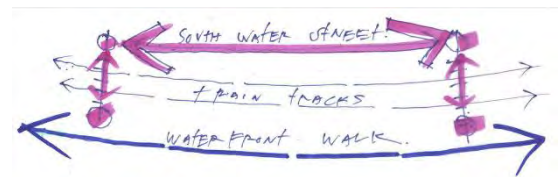 SOUTH WATER STREET.
TRAIN TRACKS
WATERFRONT WALK.